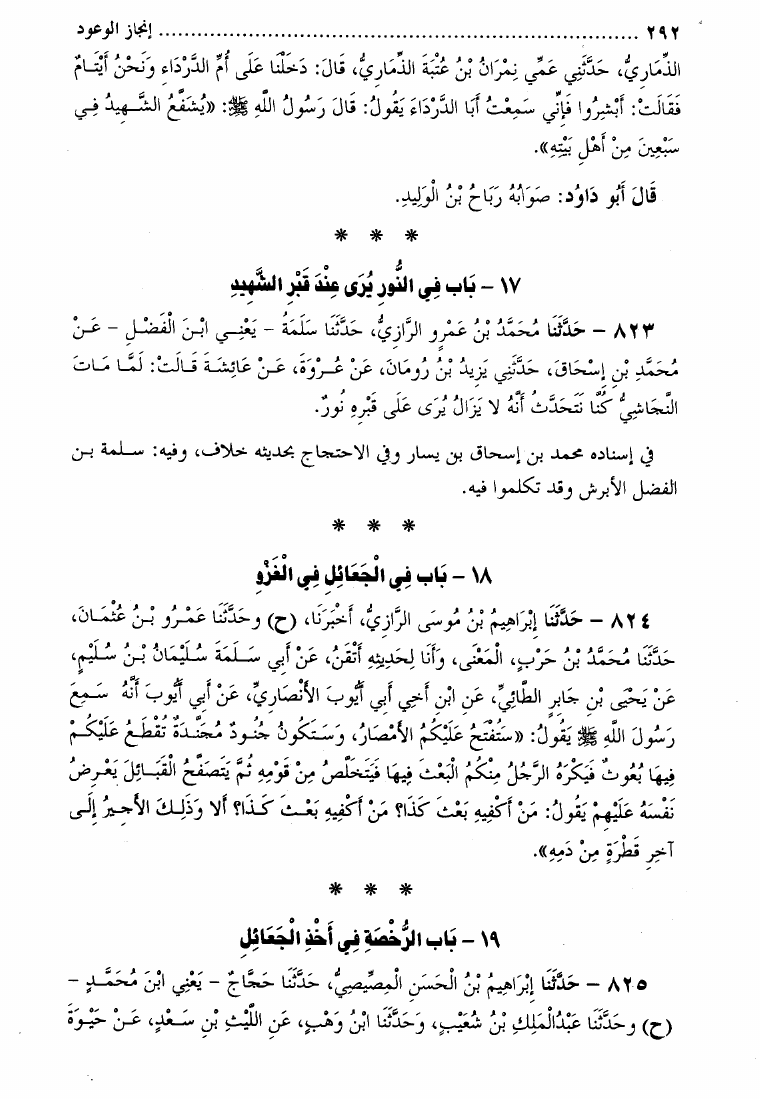 ٢٩٢ ................................................................ إنجاز الوعود
الذِّمَارِيُّ، حَدَّثَنِي عَمِّي نِمْرَانُ بْنُ عُتْبَةَ الذِّمَارِيُّ، قَالَ: دَخَلْنَا عَلَى أُمِّ الدَّرْدَاءِ وَنَحْنُ أَيْتَـامٌ
فَقَالَتْ: أَبْشِرُوا فَإِنِّي سَمِعْتُ أَبَا الدَّرْدَاءِ يَقُولُ: قَالَ رَسُولُ اللَّهِ ﷺ: «يُشَفَّعُ الشَّـهِيدُ فِـي
سَبْعِينَ مِنْ أَهْلِ بَيْتِهِ».
قَالَ أَبُو دَاوُد: صَوَابُهُ رَبَاحُ بْنُ الْوَلِيدِ.
* * *
١٧ - بَاب فِي النُّورِ يُرَى عِنْدَ قَبْرِ الشَّهِيدِ
٨٢٣ - حَدَّثَنَا مُحَمَّدُ بْنُ عَمْرٍو الرَّازِيُّ، حَدَّثَنَا سَلَمَةُ - يَعْنِـي ابْـنَ الْفَضْـلِ - عَـنْ
مُحَمَّدِ بْنِ إِسْحَاقَ، حَدَّثَنِي يَزِيدُ بْنُ رُومَانَ، عَنْ عُـرْوَةَ، عَـنْ عَائِشَـةَ قَـالَتْ: لَمَّـا مَـاتَ
النَّجَاشِيُّ كُنَّا نَتَحَدَّثُ أَنَّهُ لا يَزَالُ يُرَى عَلَى قَبْرِهِ نُورٌ.
في إسناده محمد بن إسحاق بن يسار وفي الاحتجاج بحديثه خلاف، وفيه: سـلمة بـن
الفضل الأبرش وقد تكلموا فيه.
* * *
١٨ - بَاب فِي الْجَعَائِلِ فِي الْغَزْوِ
٨٢٤ - حَدَّثَنَا إِبْرَاهِيمُ بْنُ مُوسَى الرَّازِيُّ، أَخْبَرَنَا، (ح) وحَدَّثَنَا عَمْرُو بْـنُ عُثْمَـانَ،
حَدَّثَنَا مُحَمَّدُ بْنُ حَرْبٍ، الْمَعْنَى، وَأَنَا لِحَدِيثِهِ أَتْقَنُ، عَنْ أَبِي سَـلَمَةَ سُلَيْمَانُ بْـنُ سُلَيْمٍ،
عَنْ يَحْيَى بْنِ جَابِرٍ الطَّائِيِّ، عَنِ ابْنِ أَخِي أَبِي أَيُّوبَ الأَنْصَارِيِّ، عَنْ أَبِي أَيُّوبَ أَنَّهُ سَـمِعَ
رَسُولَ اللَّهِ ﷺ يَقُولُ: «سَتُفْتَحُ عَلَيْكُمُ الأَمْصَارُ، وَسَتَكُونُ جُنُودٌ مُجَنَّدَةٌ تُقْطَعُ عَلَيْكُـمْ
فِيهَا بُعُوثٌ فَيَكْرَهُ الرَّجُلُ مِنْكُمُ الْبَعْثَ فِيهَا فَيَتَخَلَّصُ مِنْ قَوْمِهِ ثُمَّ يَتَصَفَّحُ الْقَبَـائِلَ يَعْـرِضُ
نَفْسَهُ عَلَيْهِمْ يَقُولُ: مَنْ أَكْفِيهِ بَعْثَ كَذَا؟ مَنْ أَكْفِيهِ بَعْـثَ كَـذَا؟ أَلا وَذَلِـكَ الأَجـيرُ إِلَـى
آخِرِ قَطْرَةٍ مِنْ دَمِهِ».
* * *
١٩ - بَاب الرُّخْصَةِ فِي أَخْذِ الْجَعَائِلِ
٨٢٥ - حَدَّثَنَا إِبْرَاهِيمُ بْنُ الْحَسَنِ الْمِصِّيصِيُّ، حَدَّثَنَا حَجَّاجٌ - يَعْنِي ابْنَ مُحَمَّـدٍ -
(ح) وحَدَّثَنَا عَبْدُالْمَلِكِ بْنُ شُعَيْبٍ، وَحَدَّثَنَا ابْنُ وَهْبٍ، عَنِ اللَّيْثِ بْنِ سَـعْدٍ، عَـنْ حَيْـوَةَ